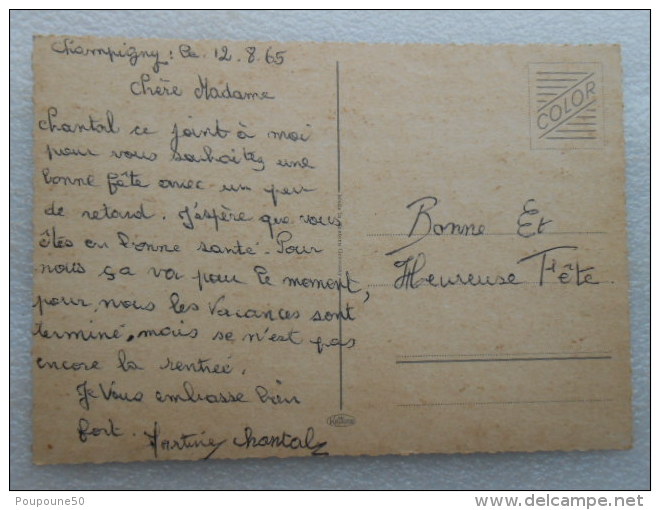 Champigny : le 12.8.65
Chère Madame
Chantal ce joint à moi
pour vous souhaitez une
bonne fête avec un peu
de retard. J'espère que vous
êtes en bonne santé. Pour
nous ça va pour le moment,
pour nous les vacances sont
terminé, mais se n'est pas
encore la rentrée.
Je Vous embrasse bien
fort. Martine Chantal
COLOR
Bonne Et
Heureuse Fête.
Poupoune50
www.delcampe.net